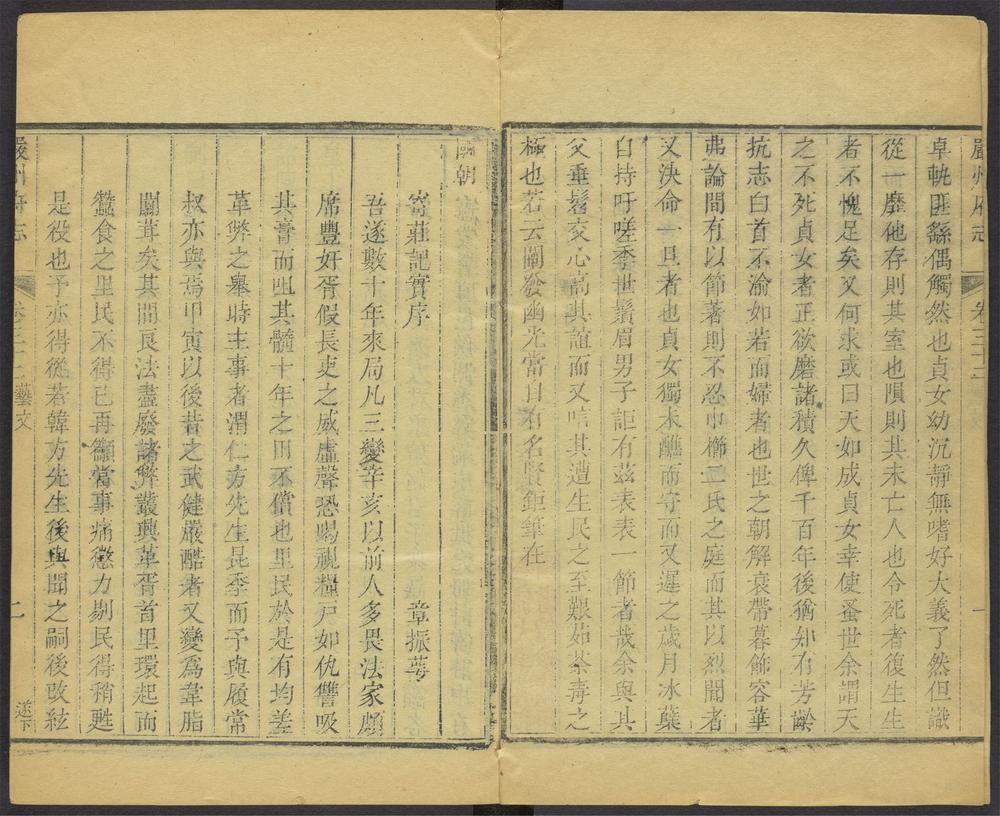 嚴州府志　卷三十二　一
卓軌匪繇偶觸然也貞女幼沉靜無嗜好大義了然但識
從一靡他存則其室也隕則其未亡人也令死者復生生
者不愧足矣又何求或曰天如成貞女幸使蚤世余謂天
之不死貞女者正欲磨諸積久俾千百年後猶知有芳齡
抗志白首不渝如若而婦者也世之朝解衰帶暮飾容華
弗論間有以節著則不忍巾櫛二氏之庭而其以烈聞者
又決命一旦者也貞女獨未醮而守而又遲之歲月冰蘗
自持吁嗟季世鬚眉男子詎有茲表表一節者哉余與其
父垂髫交心高其誼而又唁其遭生民之至艱茹荼毒之
極也若云闡發幽光當自有名賢鉅筆在
國朝
寄莊記實序　章振萼
吾遂數十年來局凡三變辛亥以前人多畏法家頗
席豐好胥假長吏之威虛聲恐喝視糧戶如仇讐吸
其膏而呾其髓十年之田不償也里民於是有均差
革弊之舉時主事者渭仁方先生昆季而予與履常
叔亦與焉甲寅以後昔之武健嚴酷者又變爲韋脂
闒茸矣其間良法盡廢諸弊叢興革胥首里環起而
蠶食之里民不得已再籲當事痛懲力剔民得稍甦
是役也予亦得從若韓方先生後與聞之嗣後改絃
嚴州府志　卷三十二藝文　二　遂下